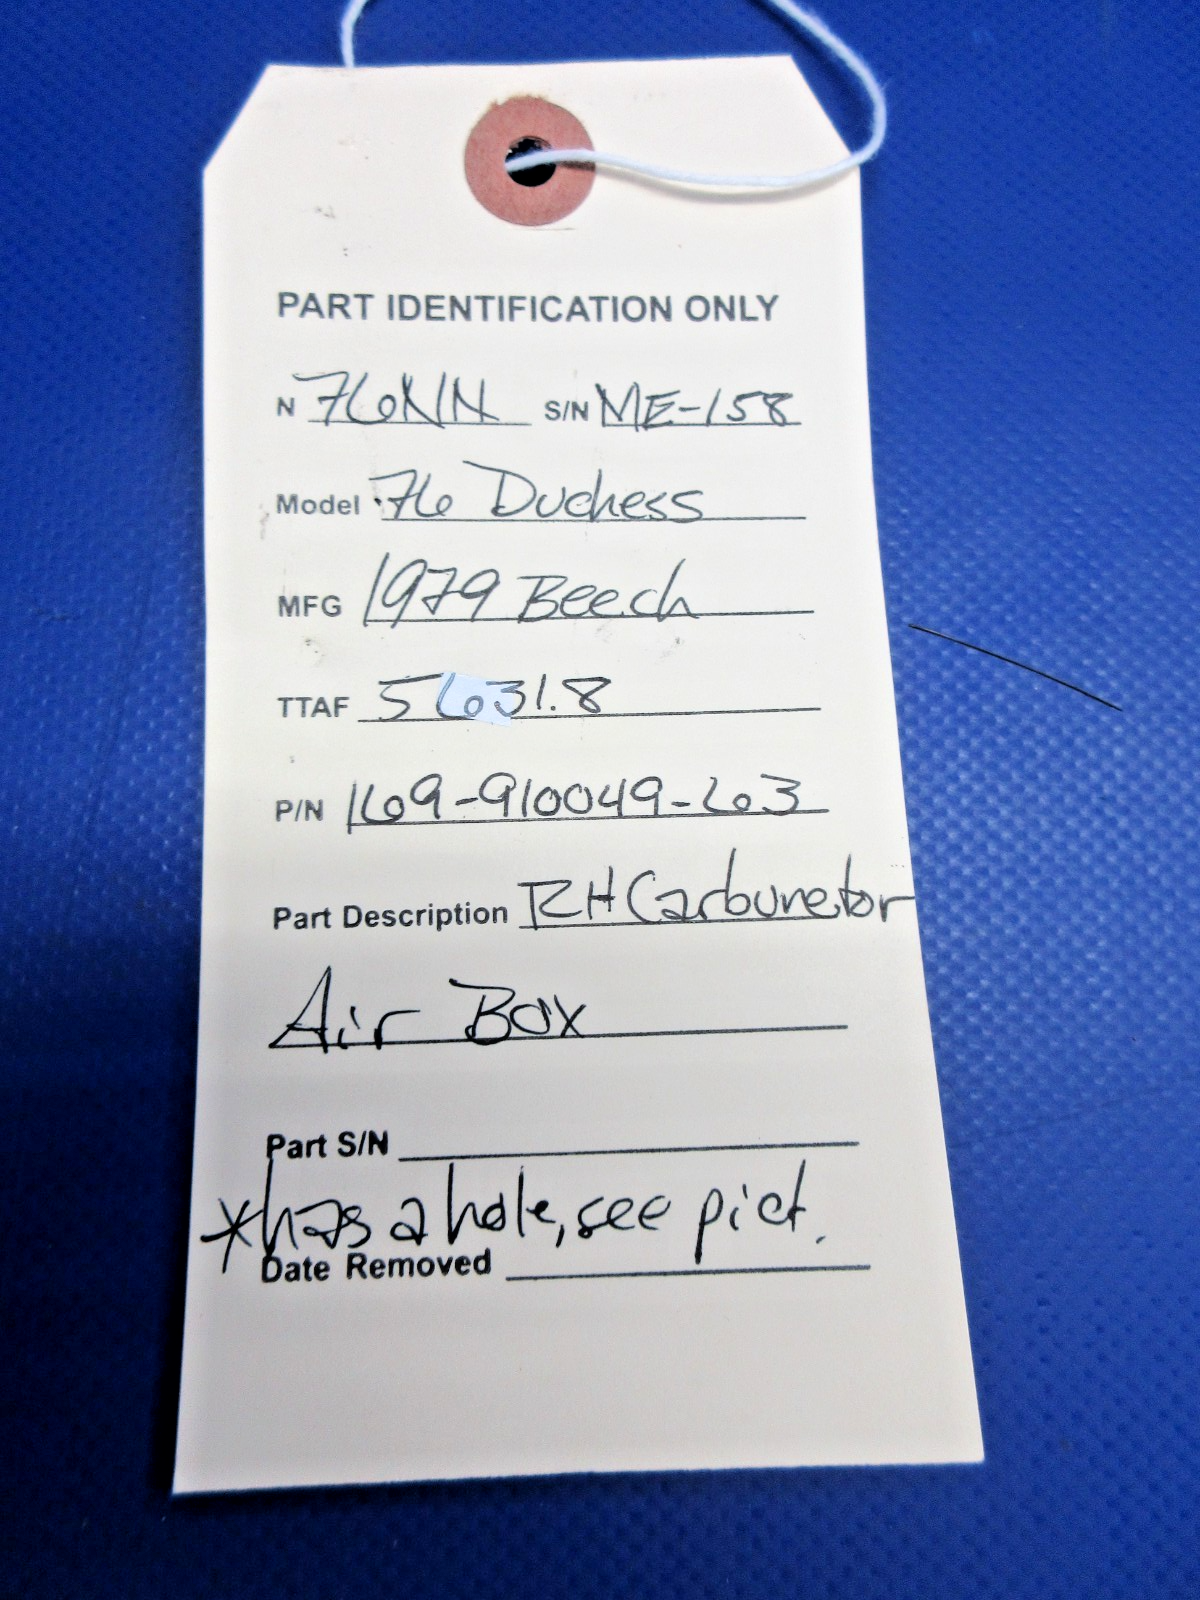 PART IDENTIFICATION ONLY
N 76NN S/N ME-158
Model 76 Duchess
MFG 1979 Beech
TTAF 5631.8
P/N 169-910049-63
Part Description RH Carburetor
Air Box
Part S/N
*has a hole, see pict.
Date Removed